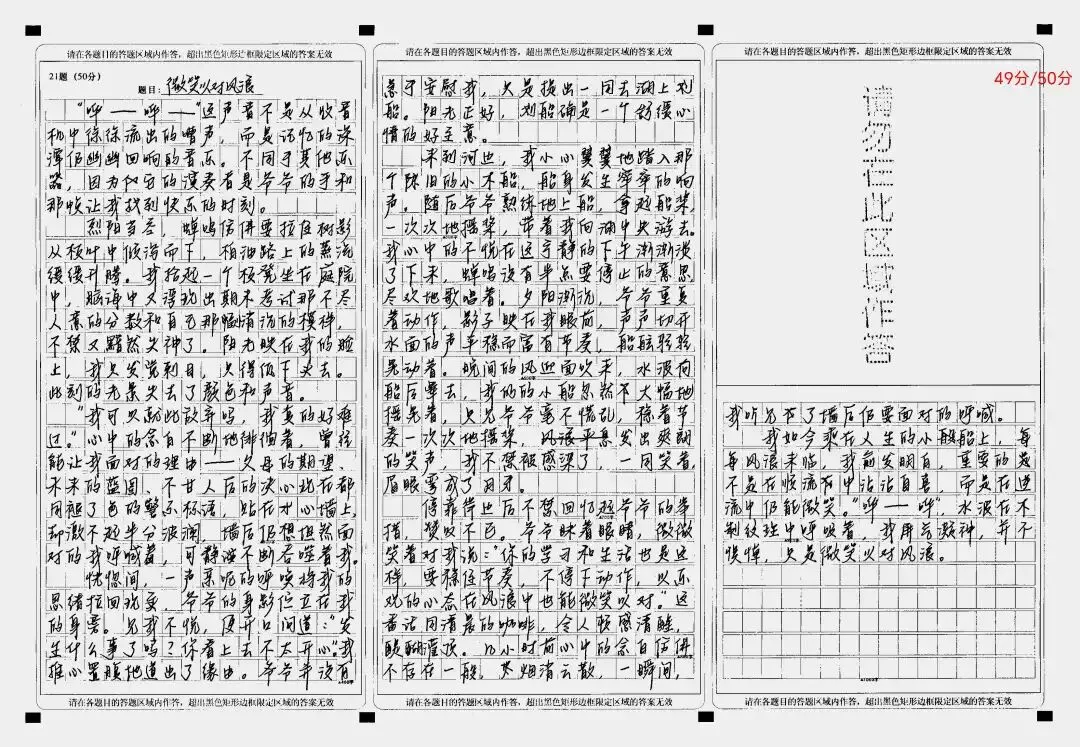 请在各题目的答题区域内作答，超出黑色矩形边框限定区域的答案无效
21题（50分）
题目：微笑以对风浪
"哗——哗——"这声音不是从收音
机中徐徐流出的嘈声，而是记忆的深
潭仍幽幽回响的音乐。不同于其他乐
器，因为它的演奏者是爷爷的手和
那帧让我找到快乐的时刻。
烈阳当空，蝉鸣仿佛要拉住树影
从枝叶中倾泻而下，柏油路上的蒸汽
缓缓升腾。我拾起一个板凳坐在庭院
中，脑海中又浮现出期末考试那不尽
人意的分数和自己那
不禁又黯然失神了。阳光映在我的脸
上，我只发觉刺目，只得低下头去。
此刻的光景失去了颜色和声音。
"我可以就此放弃吗，我真的好难
过。"心中的念头不断地徘徊着，曾经
能让我面对的理由——父母的期望、
未来的蓝图、不甘人后的决心此在都
用褪了色的警示标语，贴在才心墙上，
却激不起半分波澜，墙后仍想坦然面
对的我呼喊着，可静谧不断吞噬着我。
恍惚间，一声亲昵的呼唤将我的
思绪拉回现实，爷爷的身影伫立在我
的身旁。见我不悦，便开口问道："发
生什么事了吗？你看上去不太开心"我
推心置腹地道出了缘由。爷爷并没有
请在各题目的答题区域内作答，超出黑色矩形边框限定区域的答案无效
请在各题目的答题区域内作答，超出黑色矩形边框限定区域的答案无效
急于安慰我，只是提出一同去湖上划
船。阳光正好，划船确是一个舒缓心
情的好主意。
来到河边，我小心翼翼地踏入那
个陈旧的小木船，船身发生窣窣的响
声。随后爷爷熟练地上船，拿起船桨，
一次次地摇桨，带着我向湖中央游去。
我心中的不悦在这宁静的下午渐渐淡
了下来，蝉鸣没有半点要停止的意思
尽次地歌唱着。夕阳渐沉，爷爷重复
着动作，影子映在我眼前，声声切开
水面的声平稳而富有节奏，船舷轻轻
晃动着。晚间的风迎面吹来，水波向
船后荦去，我们的小船忽然不大幅地
摇晃着，只见爷爷毫不慌乱，稳着节
奏一次次地摇桨，风浪平息发出爽朗
的笑声，我不禁被感染了，一同笑着，
眉眼弯成了月牙。
停靠岸边后不禁回忆起爷爷的举
措，赞叹不已。爷爷眯着眼睛，微微
笑着对我说："你的学习和生活也是这
样，要稳住节奏，不停下动作，以乐
观的心态在风浪中也能微笑以对。"这
番话同清晨的咖啡，令人顿感清醒，
醍醐灌顶。几小时前心中的念头仿佛
不存在一般，烟消云散，一瞬间，
请在各题目的答题区域内作答，超出黑色矩形边框限定区域的答案无效
请在各题目的答题区域内作答，超出黑色矩形边框限定区域的答案无效
49分/50分
请勿在此区域作答
我听见了墙后仍要面对的呼喊。
我如今乘在人生的小船上，每
每风浪来临，我前发明白，重要的是
不是在顺流中沾沾自喜，而是在逆
流中仍能微笑。"哗——哗"，水波在木
制纹理中呼吸着，我屏气凝神，并不
惧惮，只是微笑以对风浪。
请在各题目的答题区域内作答，超出黑色矩形边框限定区域的答案无效